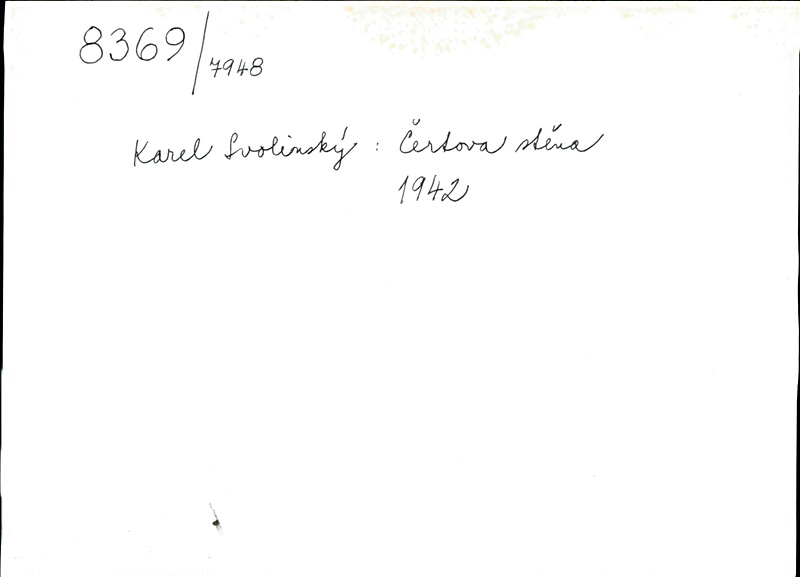 8369/7948
Karel Svolinský : Čertova stěna
1942